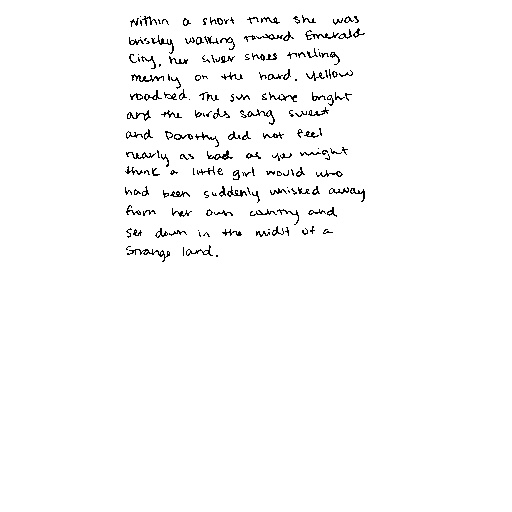 Within a short time she was
briskley walking toward Emerald
City, her Silver shoes tinkling
merrily on the hard, yellow
roadbed. The sun shone bright
and the birds sang sweet
and Dorothy did not feel
nearly as bad as you might
think a little girl would who
had been suddenly whisked away
from her own country and
set down in the midst of a
strange land.